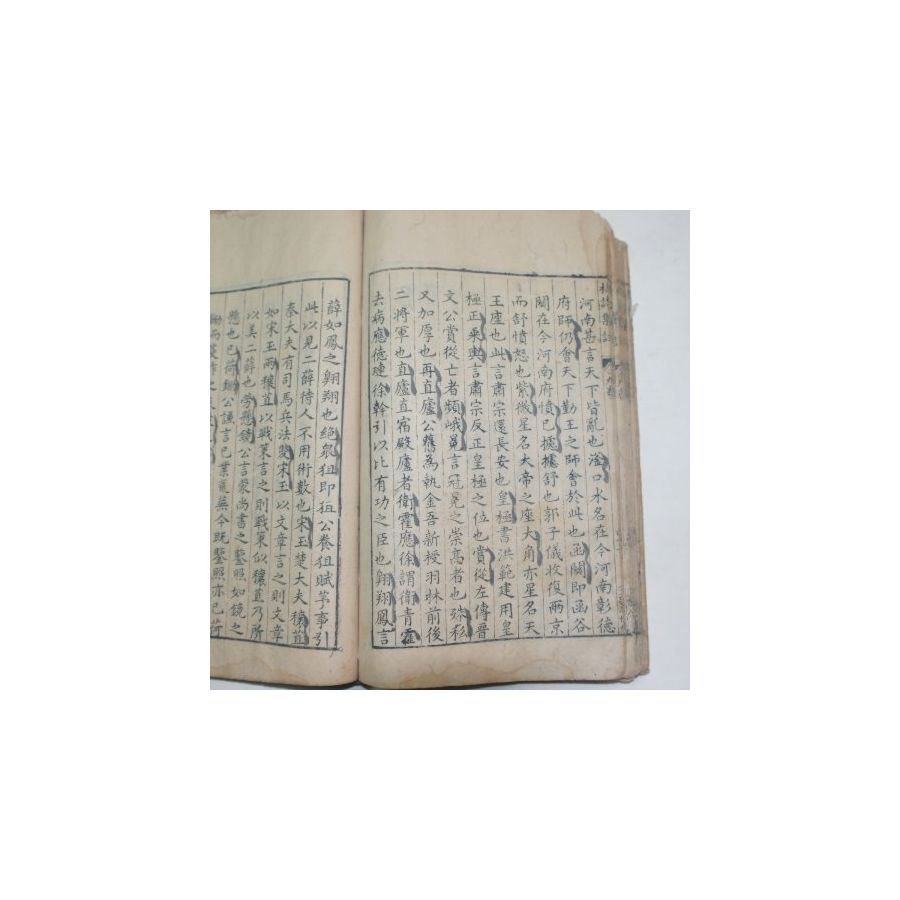 河南甚言天下皆亂也滏口水名在今河南彰德
府師仍會天下勤王之師會於此也函關即函谷
關在今河南府憤已攄攄舒也郭子儀收復兩京
而舒憤怒也紫微星名大帝之座大角亦星名天
王座也此言肅宗還長安也皇極書洪範建用皇
極正乘輿言肅宗反正皇極之位也賞從左傳晉
文公賞從亡者頻峨冕言冠冕之崇高者也殊私
又加厚也再直廬公舊為執金吾新授羽林前後
二將軍也直廬直宿殿廬者衛霍應徐謂衛青霍
去病應德璉徐幹引以比有功之臣也翱翔鳳言
薛如鳳之翱翔也絕衆狙即狙公養狙賦芧事引
此以見二薛待人不用術數也宋玉楚大夫穰苴
秦大夫有司馬兵法變宋玉以文章言之則文章
如宋玉兩穰苴以戰策言之則戰策似穰苴乃所
以美二薛也旁懸鏡公言蒙尚書之鑒照如鏡之
懸也已荷鋤公謙言已業蕪今既鑒照亦已荷
鋤而